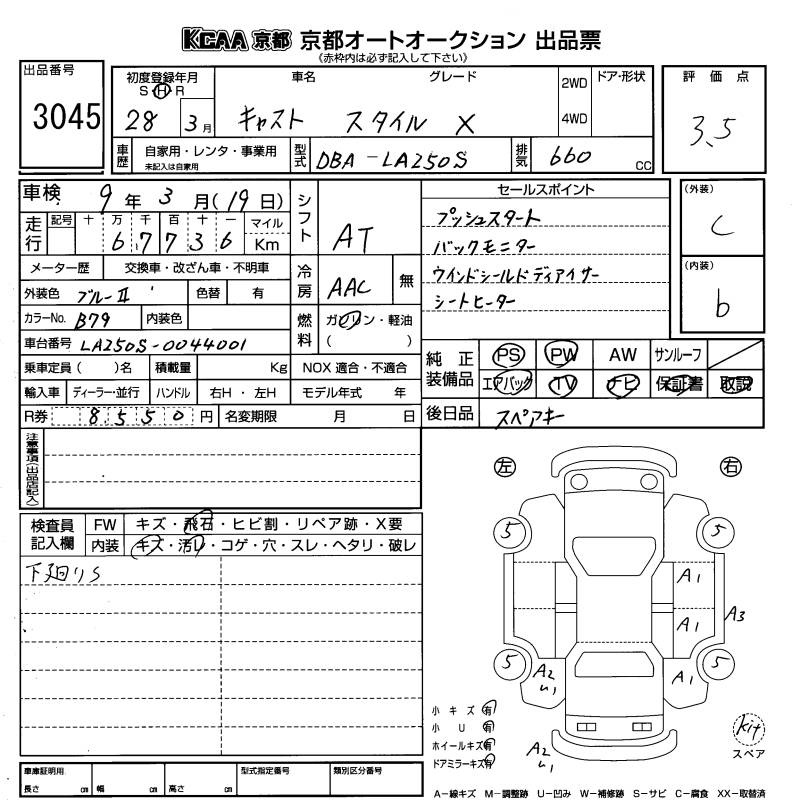 KCAA 京都 京都オートオークション 出品票
(赤枠内は必ず記入して下さい)
出品番号
3045
初度登録年月
S H R
28 3月
車名 グレード
キャスト スタイル X
2WD
4WD
ドア・形状
評価点
3.5
車歴
自家用・レンタ・事業用
未記入は自家用
型式
DBA-LA250S
排気
660 CC
車検 9年 3月(19日)
走行
記号 十 万 千 百 十 一
6 7 7 3 6
マイル
Km
シフト
AT
メーター歴 交換車・改ざん車・不明車
冷房
AAC
無
外装色 ブルーII 色替 有
カラーNo. B79 内装色
燃料
ガソリン・軽油
( )
車台番号 LA250S-0044001
乗車定員( )名 積載量 Kg NOX 適合・不適合
輸入車 ディーラー・並行 ハンドル 右H・左H モデル年式 年
R券 8550円 名変期限 月 日
セールスポイント
プッシュスタート
バックモニター
ウインドシールドディアイサー
シートヒーター
(外装)
C
(内装)
b
純正装備品
PS PW AW サンルーフ
エアバック TV ナビ 保証書 取説
後日品 スペアキー
注意事項(出品店記入)
検査員記入欄
FW キズ・飛石・ヒビ割・リペア跡・X要
内装 キズ・汚レ・コゲ・穴・スレ・ヘタリ・破レ
下廻りS
左 右
5 5
A1
A1 A3
5 A2 U1 A1 5
小キズ 有
小U 有
ホイールキズ 有
ドアミラーキズ 有
A2 U1
kit
スペア
車庫証明用
長さ cm 幅 cm 高さ cm
型式指定番号
類別区分番号
A-線キズ M-調整跡 U-凹み W-補修跡 S-サビ C-腐食 XX-取替済